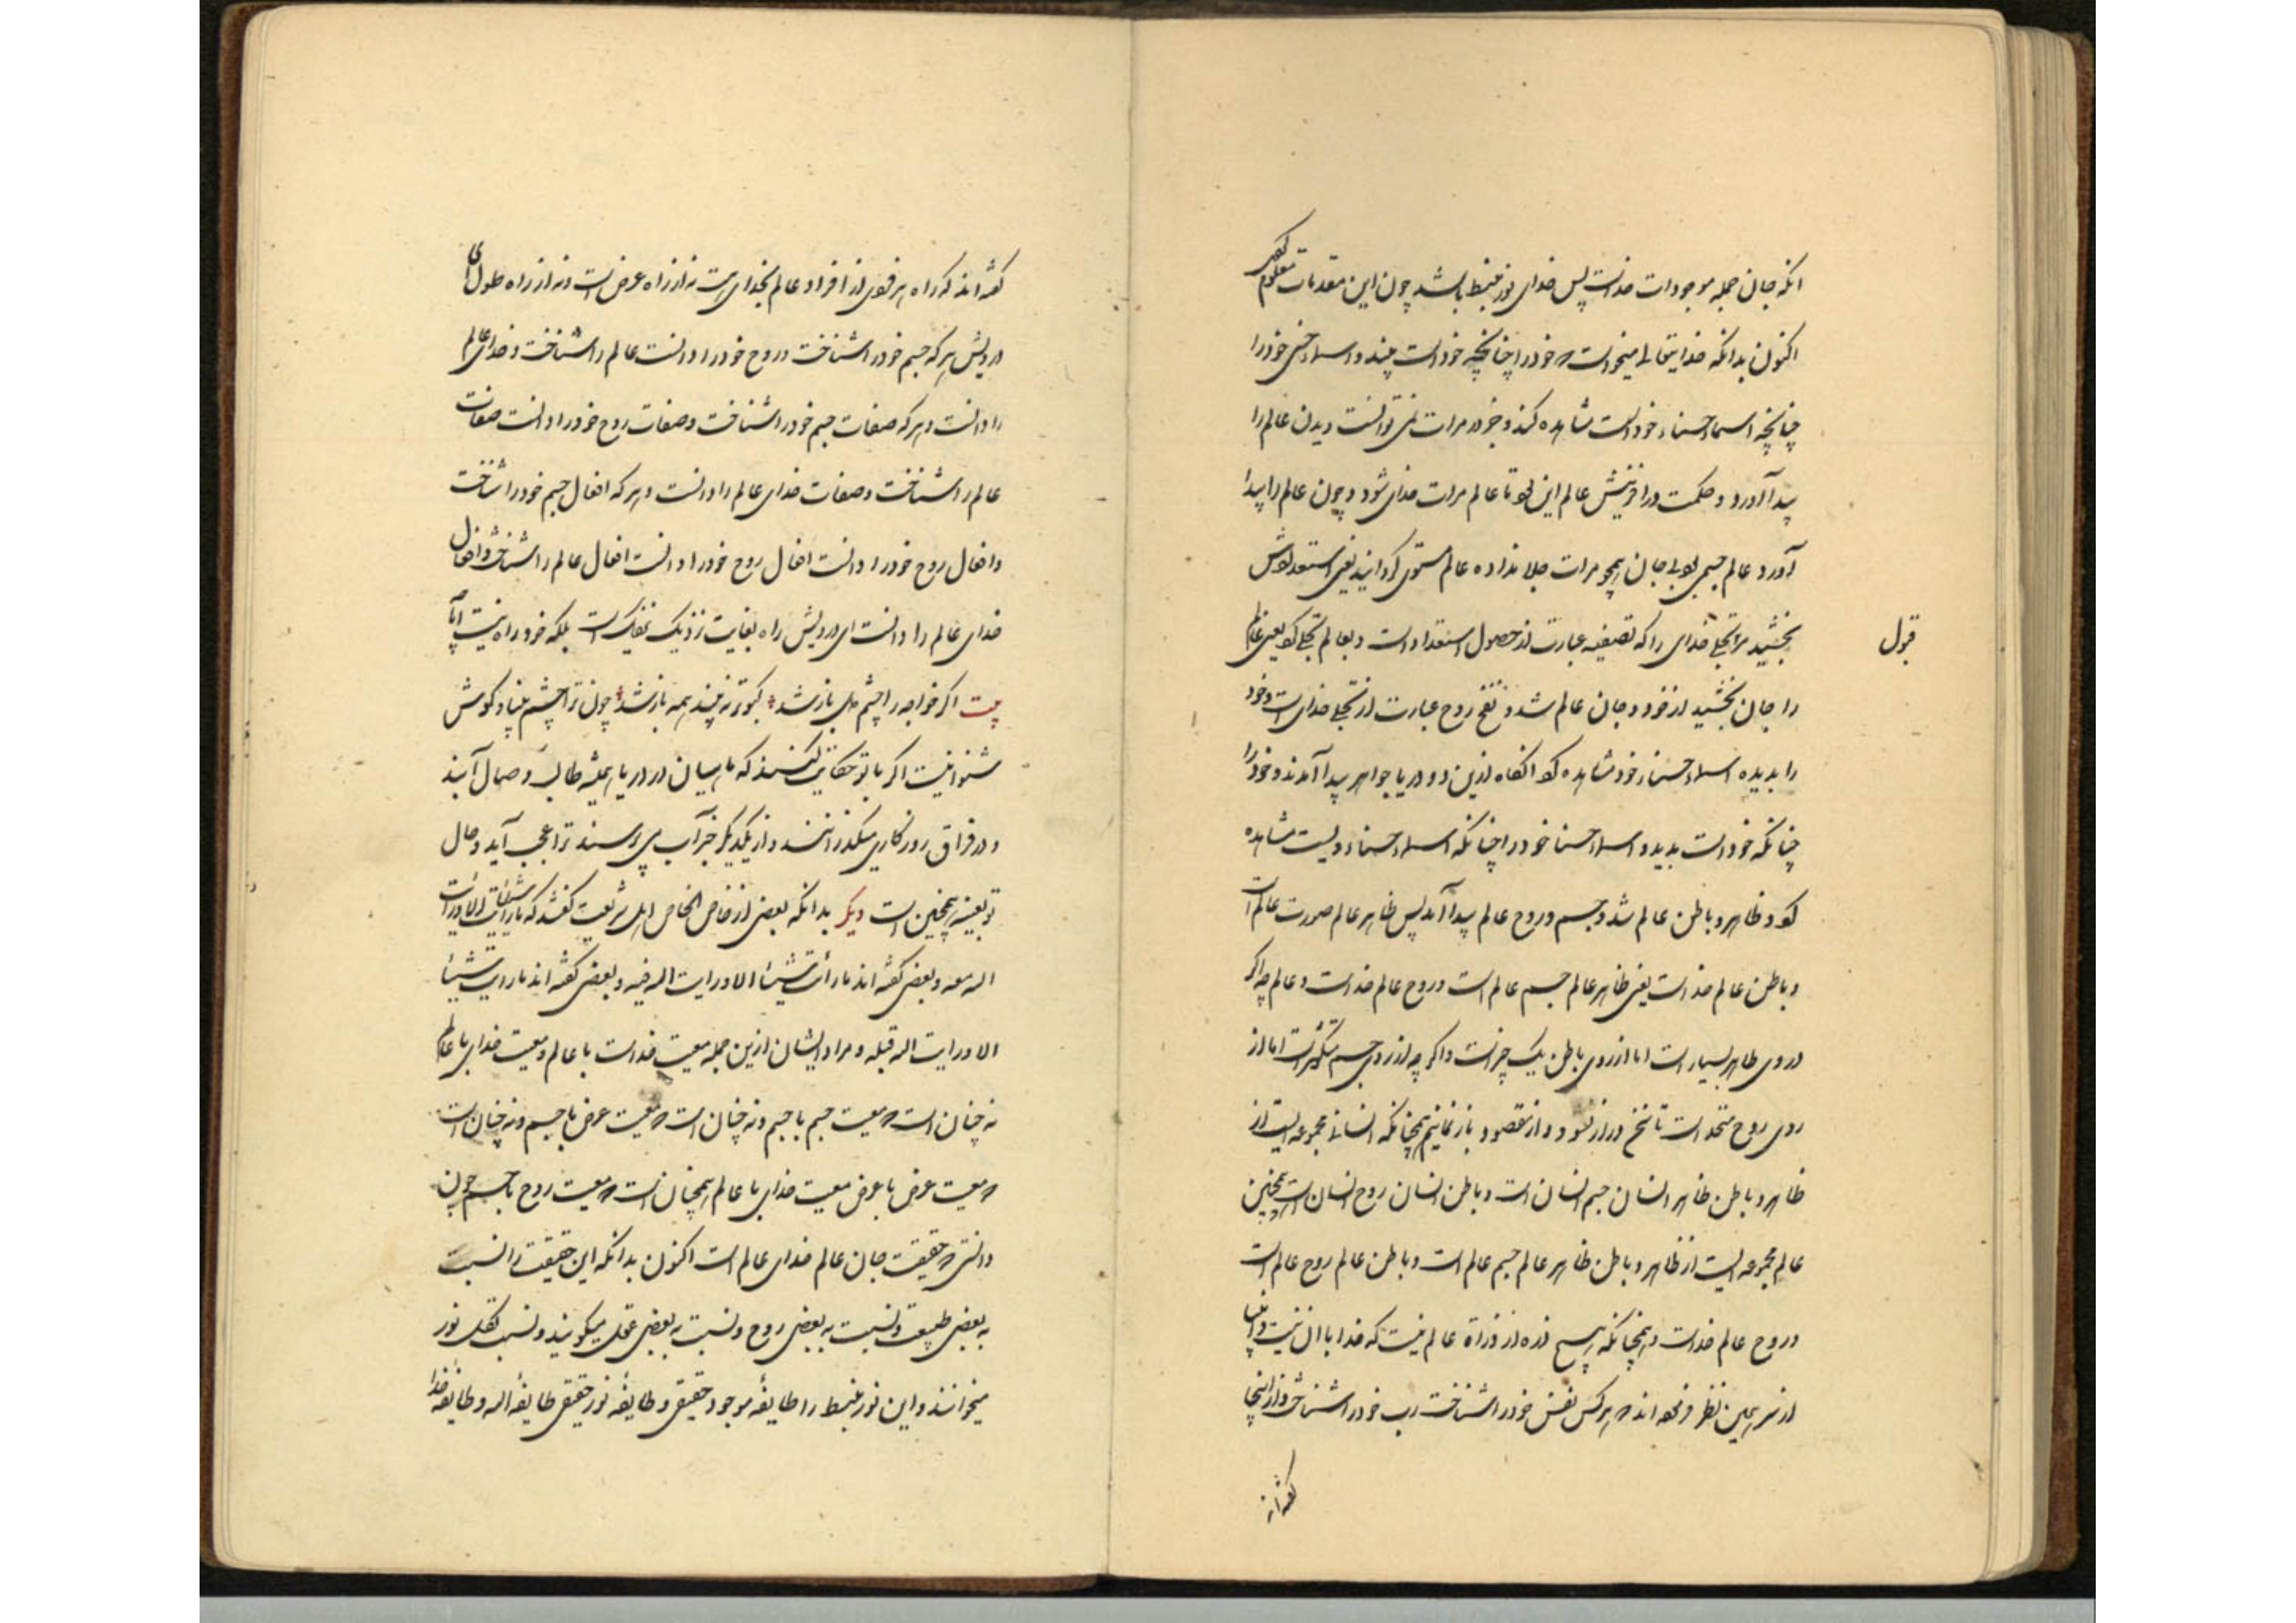 انکه جان جمله موجودات خداست پس خدای نور منبسط باشد چون این مقدمات معلوم کردی
اکنون بدانکه خدایتعالی میخواست که خود را چنانچه خود است بیند و اسماء حسنی خود را
چنانچه اسماء حسناء خود است مشاهده کند و جز در مرات نمی توانست دیدن عالم را
پیدا آورد و حکمت در آفرینش عالم این بود تا عالم مرات خدای شود و چون عالم را پیدا
آورد عالم جسمی بود بی جان همچو مرات جلا نداده عالم مستوی گردانید یعنی استعدادش
بخشید مر تجلی خدای را که تصفیه عبارت از حصول استعداد است و بعالم تجلی کرد یعنی عالم
قبول
را جان بخشید از خود و جان عالم شد و نفخ روح عبارت از تجلی خدای است و خود
را بدیده اسماء حسناء خود مشاهده کرد انکاه ازین دو دریا جواهر پیدا آمدند و خود را
چنانکه خود است بدید و اسماء حسنا خود را چنانکه اسماء حسناء ویست مشاهده
کرد و ظاهر و باطن عالم شد و جسم و روح عالم پیدا آمد پس ظاهر عالم صورت عالم است
و باطن عالم خداست یعنی ظاهر عالم جسم عالم است و روح عالم خداست و عالم چه اگر
در وی ظاهر بسیار است اما از روی باطن یک چیز است و اگر چه از روی جسم متکثر است اما از
روی روح متحد است تا سخن دراز نشود و از مقصود باز نمانیم همچنانکه انسان مجموعه ایست از
ظاهر و باطن ظاهر انسان جسم انسان است و باطن انسان روح انسان است همچنین
عالم مجموعه ایست از ظاهر و باطن ظاهر عالم جسم عالم است و باطن عالم روح عالم است
و روح عالم خداست و همچنانکه هیچ ذره از ذراة عالم نیست که خدا با ان نیست و انبیا
از سر همین نظر فرموده اند که هر کس نفس خود را شناخت رب خود را شناخت و از اینجا
گفته اند
گفته اند که راه هر فردی از افراد عالم بخدای است نه از راه عرض است و نه از راه طول ای
درویش هر که جسم خود را شناخت و روح خود را دانست عالم را شناخت و خدای عالم
را دانست و هر که صفات جسم خود را شناخت و صفات روح خود را دانست صفات
عالم را شناخت و صفات خدای عالم را دانست و هر که افعال جسم خود را شناخت
و افعال روح خود را دانست افعال روح خود را دانست افعال عالم را شناخت و افعال
خدای عالم را دانست ای درویش راه بغایت نزدیک نزدیک است بلکه خود راه نیست اما
بیت اگر خواجه را چشم دل باز شد کبوتر نبیند همه باز شد چون ترا چشم بینا و گوش
شنوا نیست اگر با تو حکایت کنند که ماهیان در دریا همیشه طالب وصال آبند
و در فراق روزکاری میگذرانند و از یکدیگر خبر آب می پرسند ترا عجب آید و حال
تو بعینه همچنین است دیگر بدانکه بعضی از خاص الخاص اهل شریعت گفتند که ما رأیت شیئا الا و رأیت
الله معه و بعضی گفته اند ما رأیت شیئا الا و رایت الله فیه و بعضی گفته اند ما رایت شیئا
الا و رایت الله قبله و مراد ایشان ازین جمله معیت خداست با عالم و معیت خدای با عالم
نه چنان است که معیت جسم با جسم و نه چنان است که معیت عرض با جسم و نه چنان است
که معیت عرض با عرض معیت خدای با عالم همچنان است که معیت روح با جسم چون
دانستی که حقیقت جان عالم خدای عالم است اکنون بدانکه این حقیقت را نسبت
به بعضی طبیعت و نسبت به بعضی روح و نسبت به بعضی عقل میگویند و نسبت بکل نور
میخوانند و این نور منبسط را طایفهٔ موجود حقیقی و طایفهٔ نور حقیقی طایفهٔ اله و طایفهٔ خدا